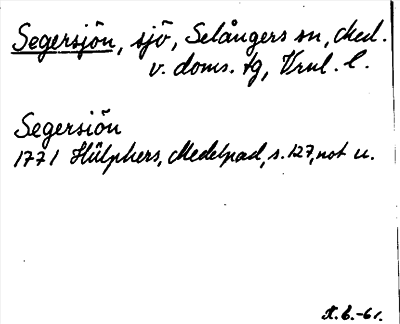 Segersjön, sjö, Selångers sn, Med.
v. doms. tg, Vrnl. l.
Segersiön
1771 Hülphers, Medelpad, s. 127, not u.
X. 6. -61.